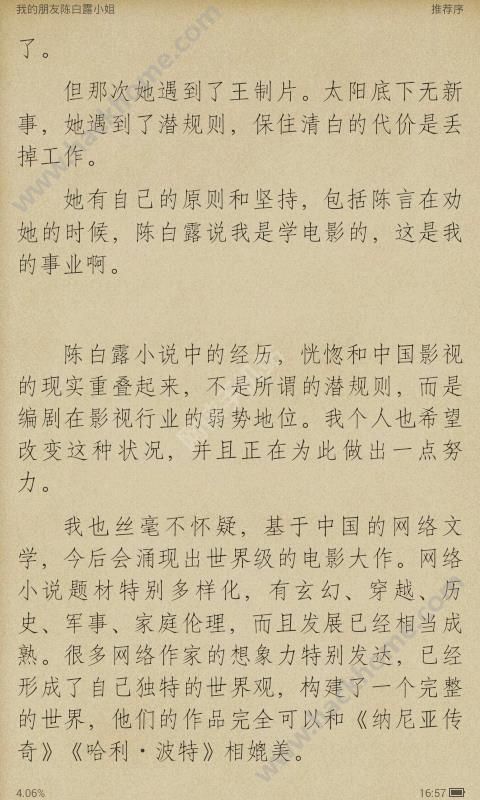 我的朋友陈白露小姐 推荐序
了。
但那次她遇到了王制片。太阳底下无新
事，她遇到了潜规则，保住清白的代价是丢
掉工作。
她有自己的原则和坚持，包括陈言在劝
她的时候，陈白露说我是学电影的，这是我
的事业啊。
陈白露小说中的经历，恍惚和中国影视
的现实重叠起来，不是所谓的潜规则，而是
编剧在影视行业的弱势地位。我个人也希望
改变这种状况，并且正在为此做出一点努
力。
我也丝毫不怀疑，基于中国的网络文
学，今后会涌现出世界级的电影大作。网络
小说题材特别多样化，有玄幻、穿越、历
史、军事、家庭伦理，而且发展已经相当成
熟。很多网络作家的想象力特别发达，已经
形成了自己独特的世界观，构建了一个完整
的世界，他们的作品完全可以和《纳尼亚传
奇》《哈利·波特》相媲美。
4.06% 16:57